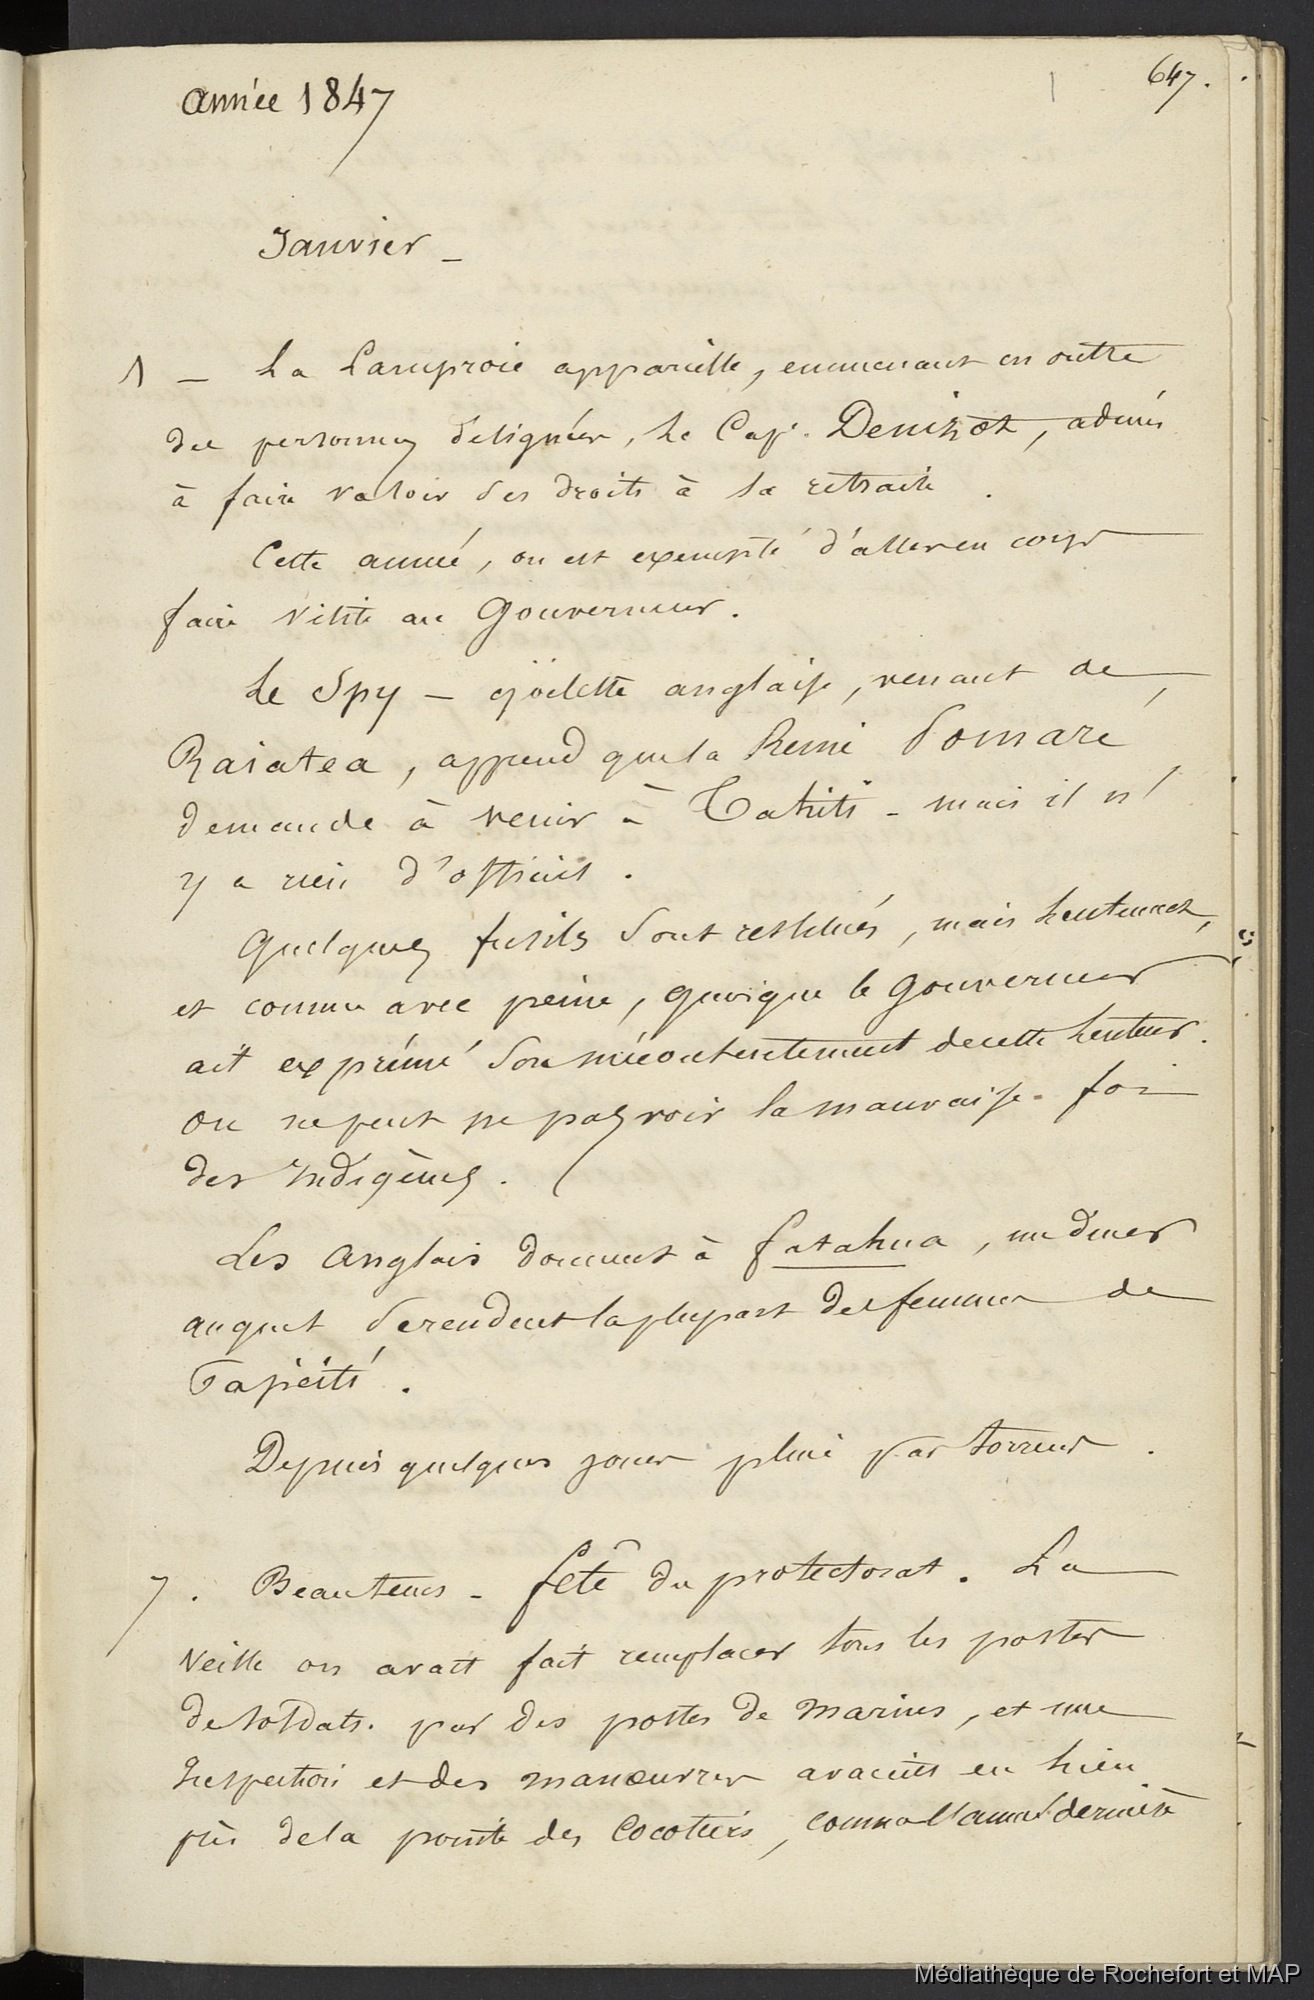 647.
année 1847
Janvier _
1 — La Lamproie appareille, emmenant en outre
des personnes désignées, le Cap. Denizot, admis
à faire valoir ses droits à la retraite.
Cette année, on est exempté d'aller en corps
faire visite au Gouverneur.
Le Spy — goëlette anglaise, venant de
Raiatea, apprend que la Reine Pomaré
demande à venir à Tahiti - mais il n'
y a rien d'officiel.
Quelques fusils sont restitués, mais lentement,
et comme avec peine, quoique le Gouverneur
ait exprimé son mécontentement de cette lenteur.
On ne peut ne pas voir la mauvaise foi
des Indigènes.
Les Anglais donnent à fatahua, un diner
auquel se rendent la plupart des femmes de
Papéiti.
Depuis quelques jours pluie par torrens.
7. Beau tems - fête du protectorat. La
veille on avait fait remplacer tous les postes
de soldats. par des postes de marins, et une
Inspection et des manœuvres avaient eu lieu
près de la pointe des Cocotiers, comme l'année dernière
Médiathèque de Rochefort et MAP